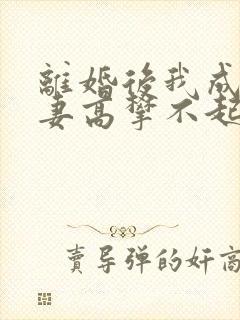 離婚後我成
妻高攀不起
賣导弹的奸商